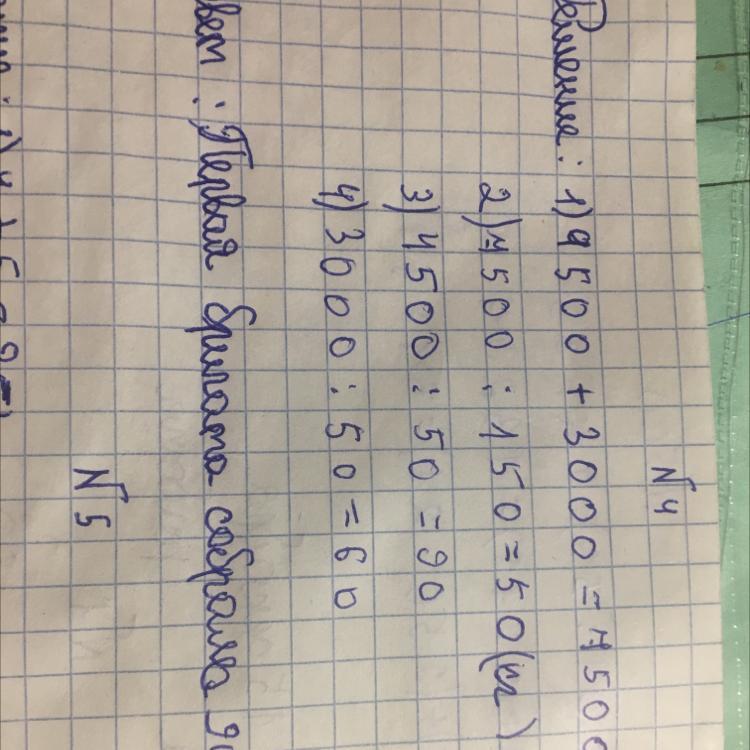 N 4
Решение: 1) 4500 + 3000 = 7500
2) 7500 : 150 = 50 (кг)
3) 4500 : 50 = 90
4) 3000 : 50 = 60
вет : Первая бригада собрала
N 5